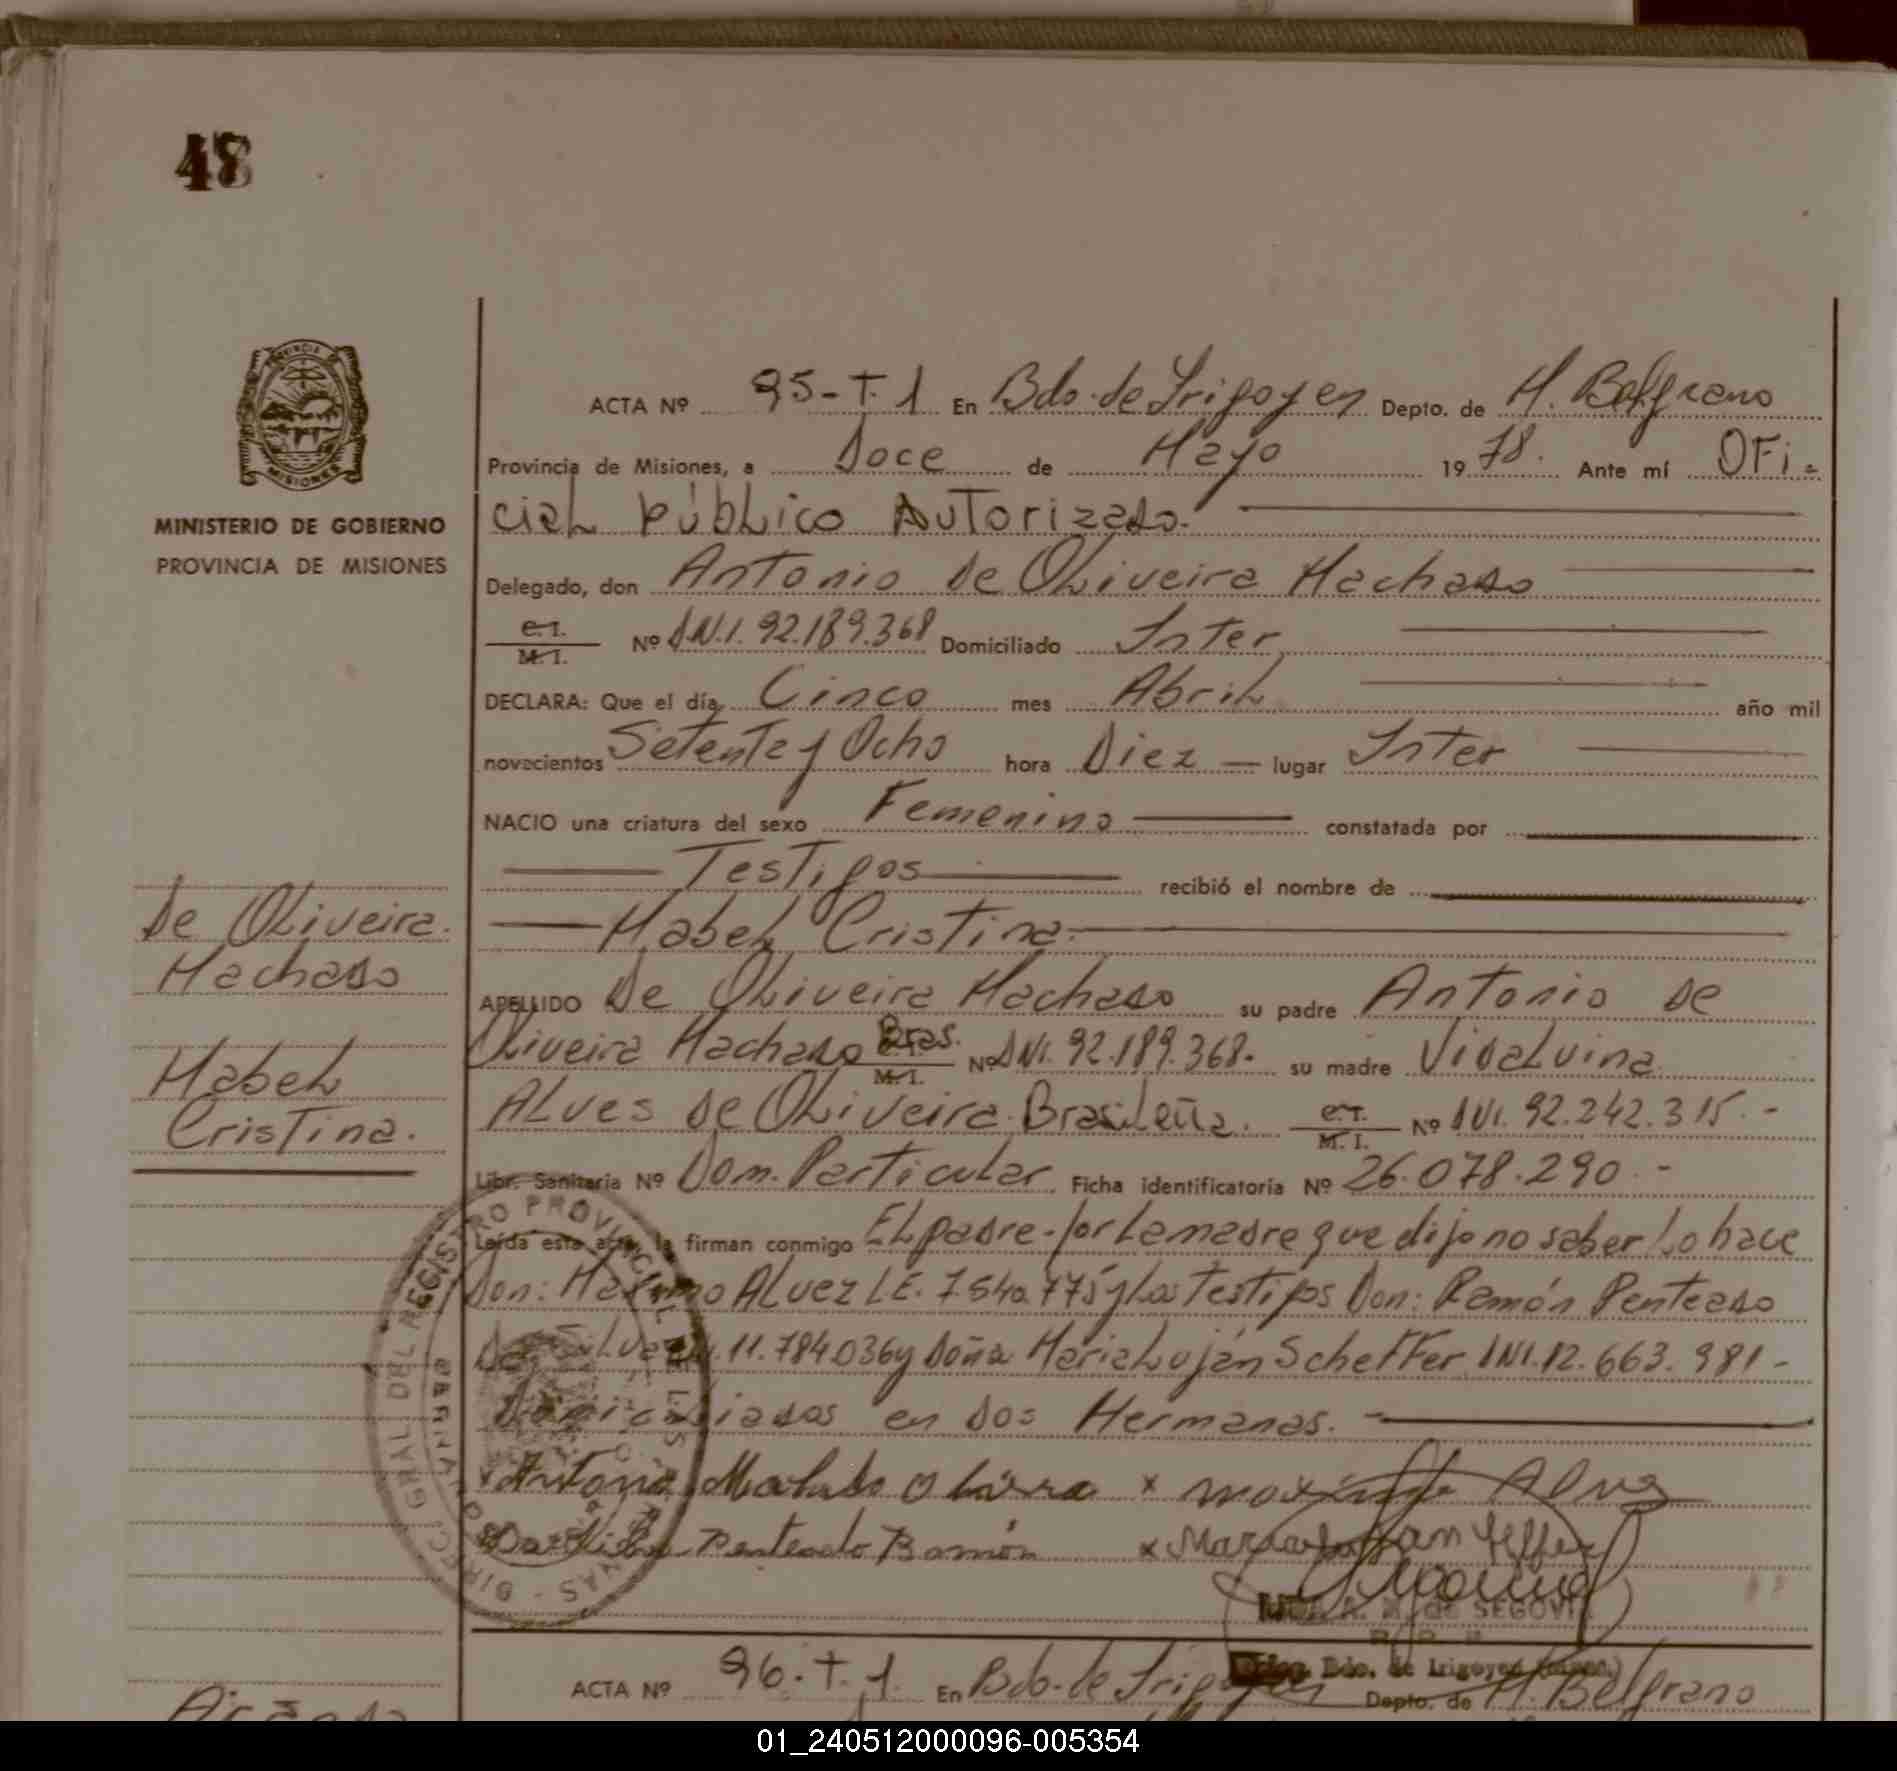 48
PROVINCIA DE
MISIONES
MINISTERIO DE GOBIERNO
PROVINCIA DE MISIONES
ACTA Nº 95-T.1 En Bdo. de Irigoyen Depto. de M. Belgrano
Provincia de Misiones, a Doce de Mayo 1978. Ante mí OFi-
ciaL PúbLico AuTorizado.
Delegado, don AnTonio de OLiveira Machado
C.I. M.I. Nº D.N.I. 92.189.368 Domiciliado InTer
DECLARA: Que el día Cinco mes AbriL año mil
novecientos SeTenTa y Ocho hora Diez lugar InTer
NACIO una criatura del sexo Femenino constatada por
TesTigos recibió el nombre de
MabeL CrisTina.
APELLIDO De OLiveira Machado su padre AnTonio de
OLiveira Machado Bras. M.I. Nº DNI. 92.189.368. su madre VidaLvina
ALves de OLiveira BrasiLeña. C.I. M.I. Nº DNI. 92.242.315.-
Libr. Sanitaria Nº Dom. ParTicuLar Ficha identificatoria Nº 26.078.290.-
Leída esta acta, la firman conmigo EL padre-Por La madre que dijo no saber Lo hace
Don: Máximo ALvez L.E. 7.540.775 y Los TesTigos Don: Ramón PenTeado
Da SiLva DNI. 11.784.036 y Doña María Luján ScheFFer DNI. 12.663.981-
DomiciLiados en Dos Hermanas.-
x Antonio Machado Olivera x Maximo Alvez
Da Silva Penteado Ramón x Maria Lujan Seffer
A. M. de SEGOVIA
Deleg. Bdo. de Irigoyen (Mnes.)
De OLiveira
Machado
MabeL
CrisTina.
DIRECC. GRAL. DEL REGISTRO PROVINCIAL DE LAS PERSONAS
ACTA Nº 96.T.1. En Bdo. de Irigoyen Depto. de M. Belgrano
01_240512000096-005354